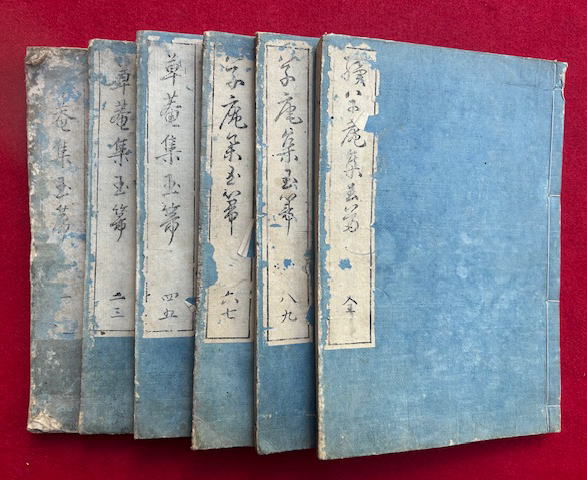 菴集玉箒
一
草菴集玉箒
二三
草菴集玉箒
四五
草庵集玉箒
六七
草庵集玉箒
八九
續草庵集玉箒
全